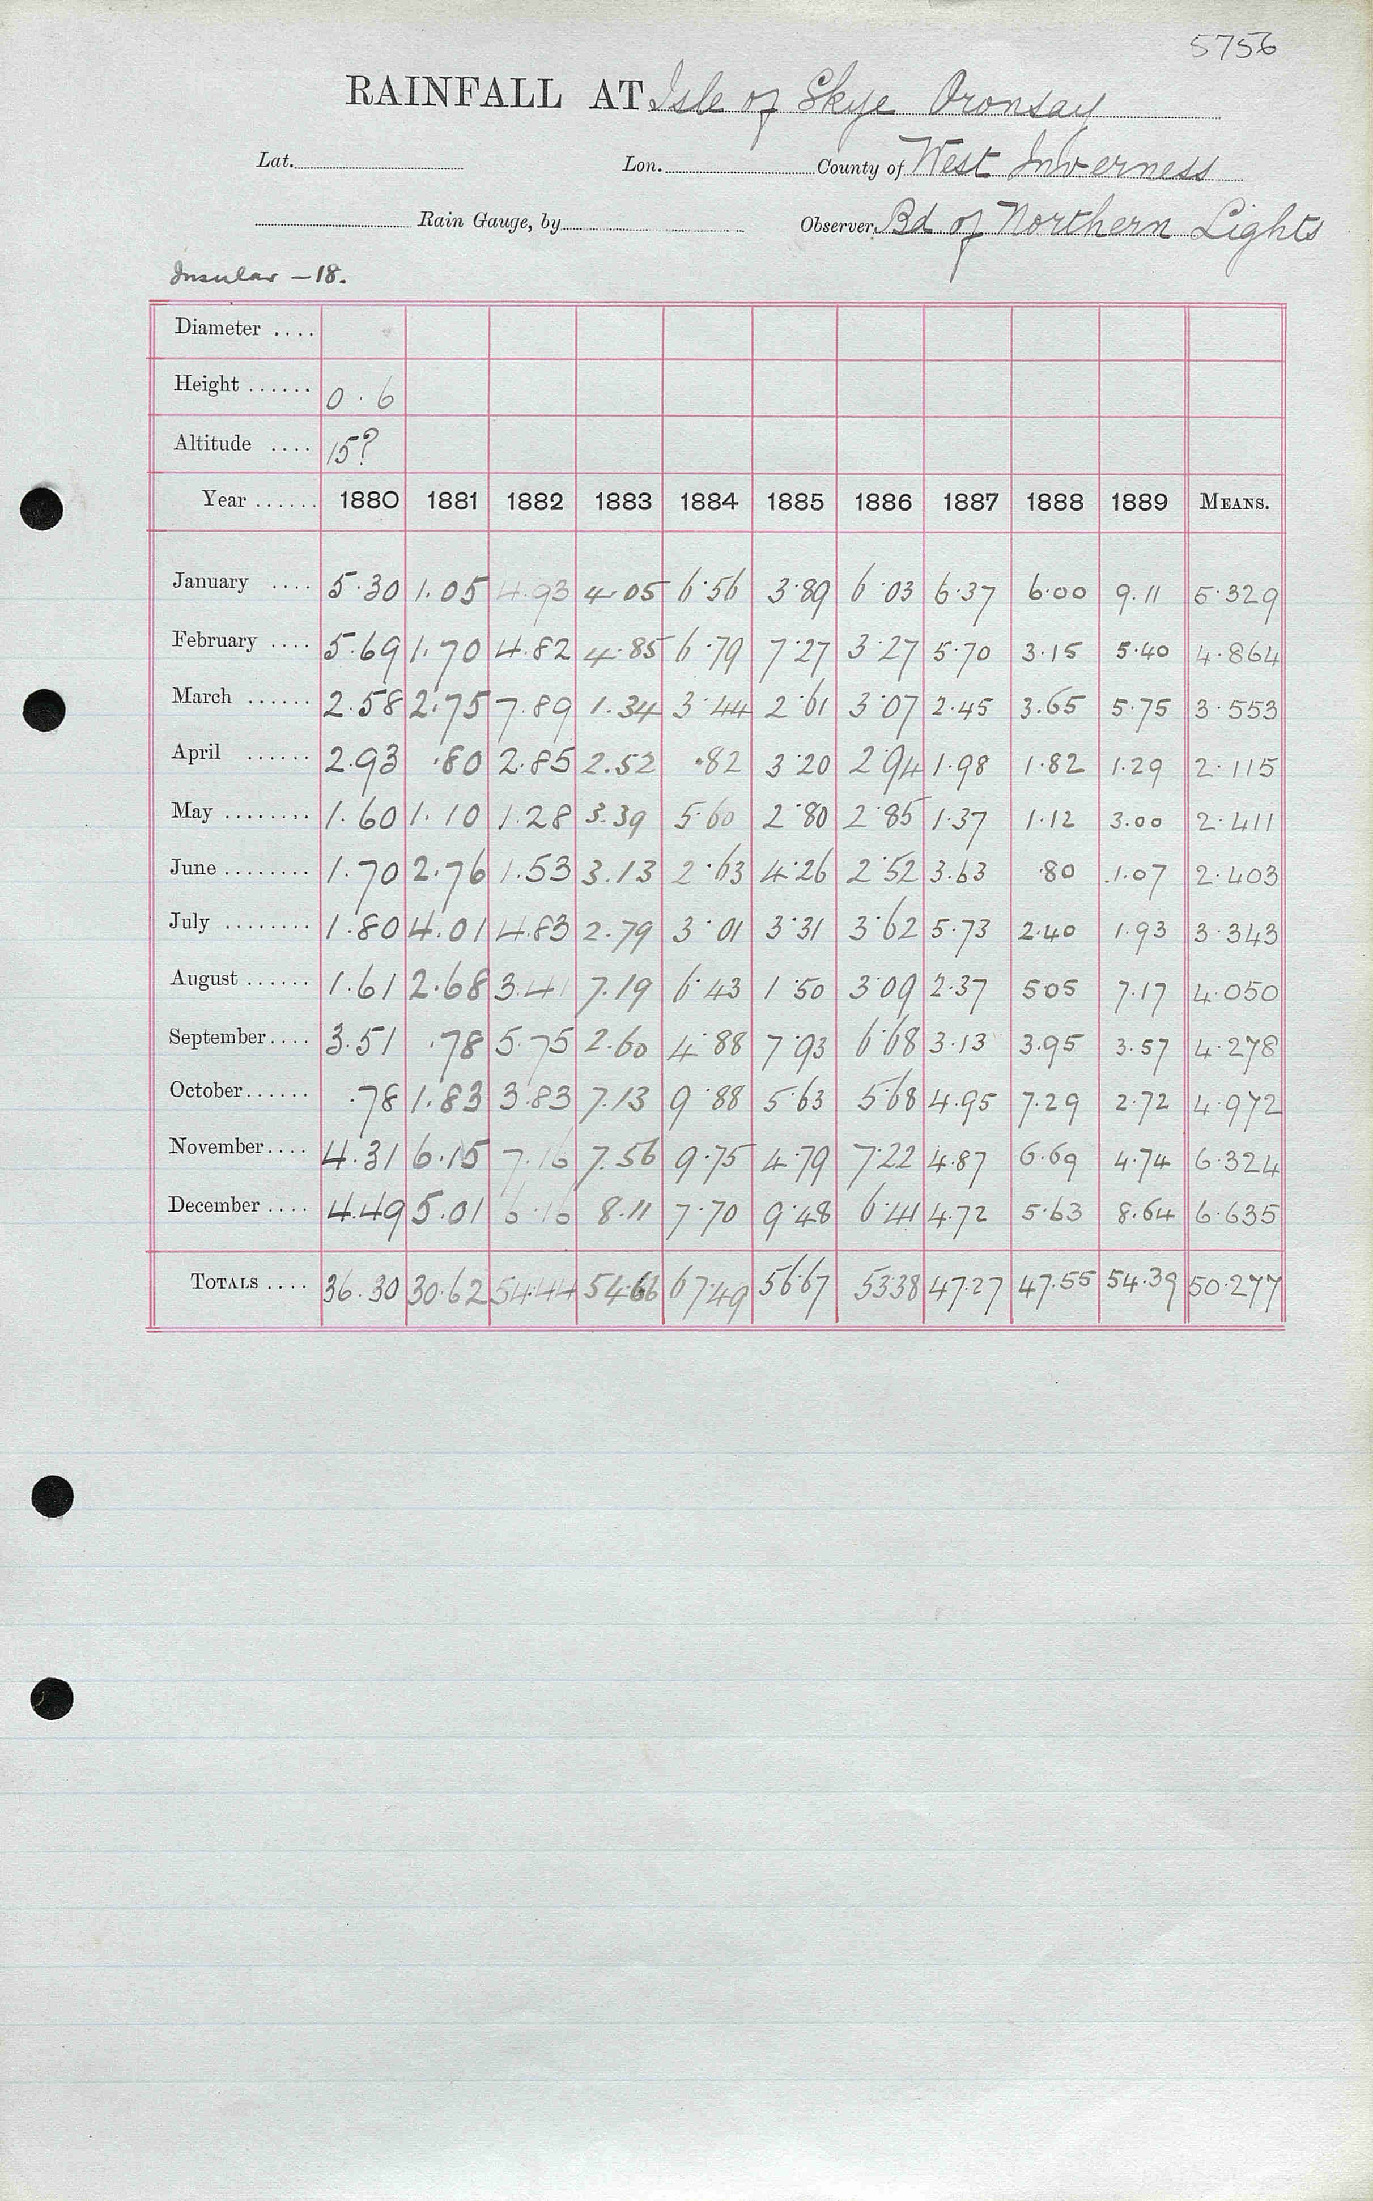 5756
RAINFALL AT Isle of Skye Oronsay
Lat. Lon. County of West Inverness
Rain Gauge, by Observer, Bd of Northern Lights
Insular — 18.
Diameter ....
Height ...... 0.6
Altitude .... 15?
Year ...... 1880 1881 1882 1883 1884 1885 1886 1887 1888 1889 MEANS.
January .... 5.30 1.05 4.93 4.05 6.56 3.89 6.03 6.37 6.00 9.11 5.329
February .... 5.69 1.70 4.82 4.85 6.79 7.27 3.27 5.70 3.15 5.40 4.864
March ...... 2.58 2.75 7.89 1.34 3.44 2.61 3.07 2.45 3.65 5.75 3.553
April ...... 2.93 .80 2.85 2.52 .82 3.20 2.94 1.98 1.82 1.29 2.115
May ........ 1.60 1.10 1.28 3.39 5.60 2.80 2.85 1.37 1.12 3.00 2.411
June ........ 1.70 2.76 1.53 3.13 2.63 4.26 2.52 3.63 .80 1.07 2.403
July ........ 1.80 4.01 4.83 2.79 3.01 3.31 3.62 5.73 2.40 1.93 3.343
August ...... 1.61 2.68 3.41 7.19 6.43 1.50 3.09 2.37 5.05 7.17 4.050
September .... 3.51 .78 5.75 2.60 4.88 7.93 6.68 3.13 3.95 3.57 4.278
October ...... .78 1.83 3.83 7.13 9.88 5.63 5.68 4.95 7.29 2.72 4.972
November .... 4.31 6.15 7.16 7.56 9.75 4.79 7.22 4.87 6.69 4.74 6.324
December .... 4.49 5.01 6.16 8.11 7.70 9.48 6.41 4.72 5.63 8.64 6.635
TOTALS .... 36.30 30.62 54.44 54.66 67.49 56.67 53.38 47.27 47.55 54.39 50.277